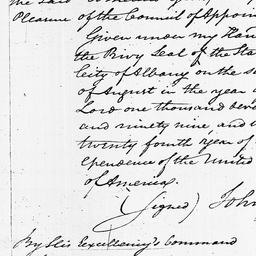 Pleasure of the Council of Appoin
Given under my Han
the Privy Seal of the Sta
City of Albany on the
of August in the year
Lord one thousand Seve
and ninety nine, and
twenty fourth year of
ependence of the United
of America.
(Signed) John
By His Excellency's Command